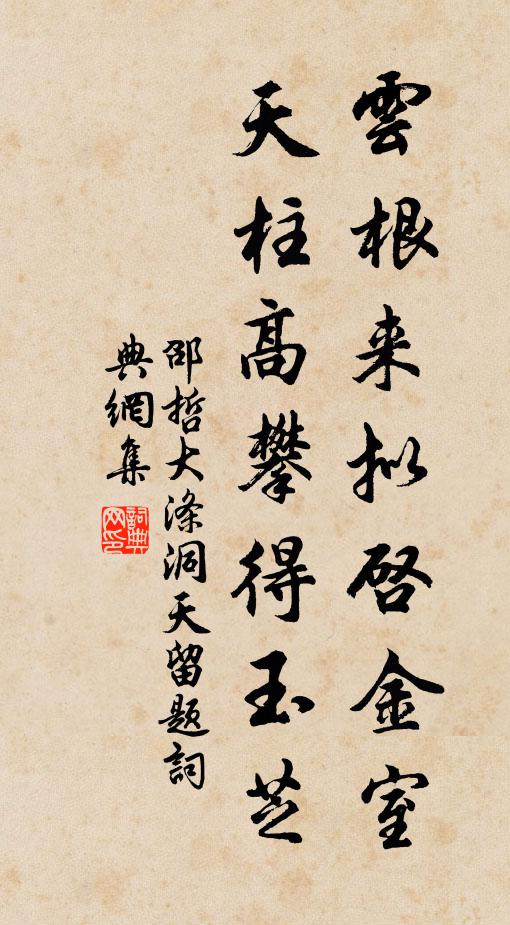 雲根来拟启金室
天柱高攀得玉芝
邵哲大涤洞天留題詞
典網集
詞典
网印